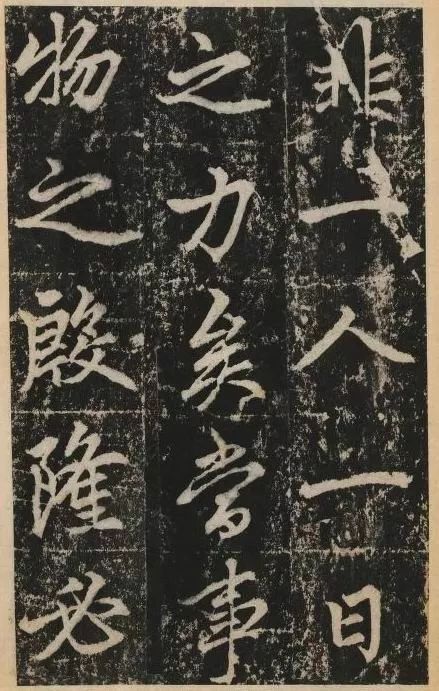 非一人一日
之力矣當事
物之殷隆必